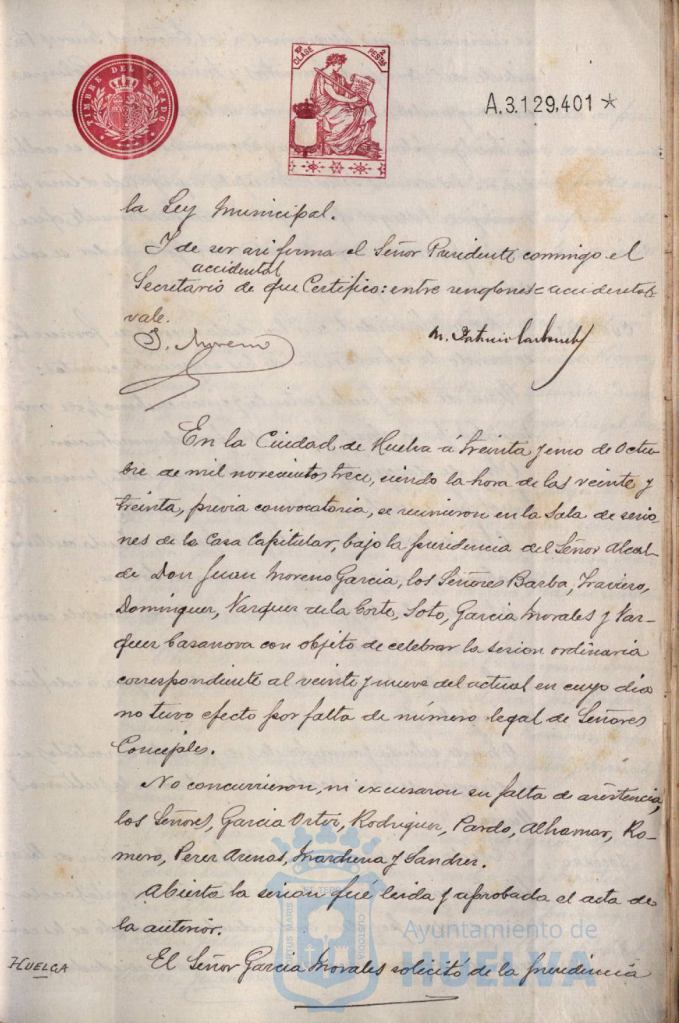 TIMBRE DEL ESTADO
10ª CLASE
2 PESETAS
A.3.129,401 *
la Ley Municipal.
Y de ser asi firma el Señor Presidente conmigo el
accidental
Secretario de que Certifico: entre renglones = accidental
vale.
J. Moreno
En la Ciudad de Huelva á treinta y uno de Octu-
bre de mil novecientos trece, siendo la hora de las veinte y
treinta, previa convocatoria, se reunieron en la Sala de sesio-
nes de la Casa Capitular, bajo la presidencia del Señor Alcal-
de Don Juan Moreno Garcia, los Señores Barba, Traviero,
Dominguez, Vazquez de la Corte, Soto, Garcia Morales y Vaz-
quez Casanova con objeto de celebrar la sesion ordinaria
correspondiente al veinte y nueve del actual en cuyo dia
no tuvo efecto por falta de número legal de Señores
Concejales.
No concurrieron, ni excusaron su falta de asistencia,
los Señores, Garcia Ortiz, Rodriguez, Pardo, Alhamar, Ro-
mero, Perez Arenas, Marchena y Sandrez.
Abierta la sesion fué leida y aprobada el acta de
la anterior.
HUELGA
El Señor Garcia Morales solicitó de la presidencia
PORTUS MARIS ET TERRAE CUSTODIA
Ayuntamiento de
HUELVA